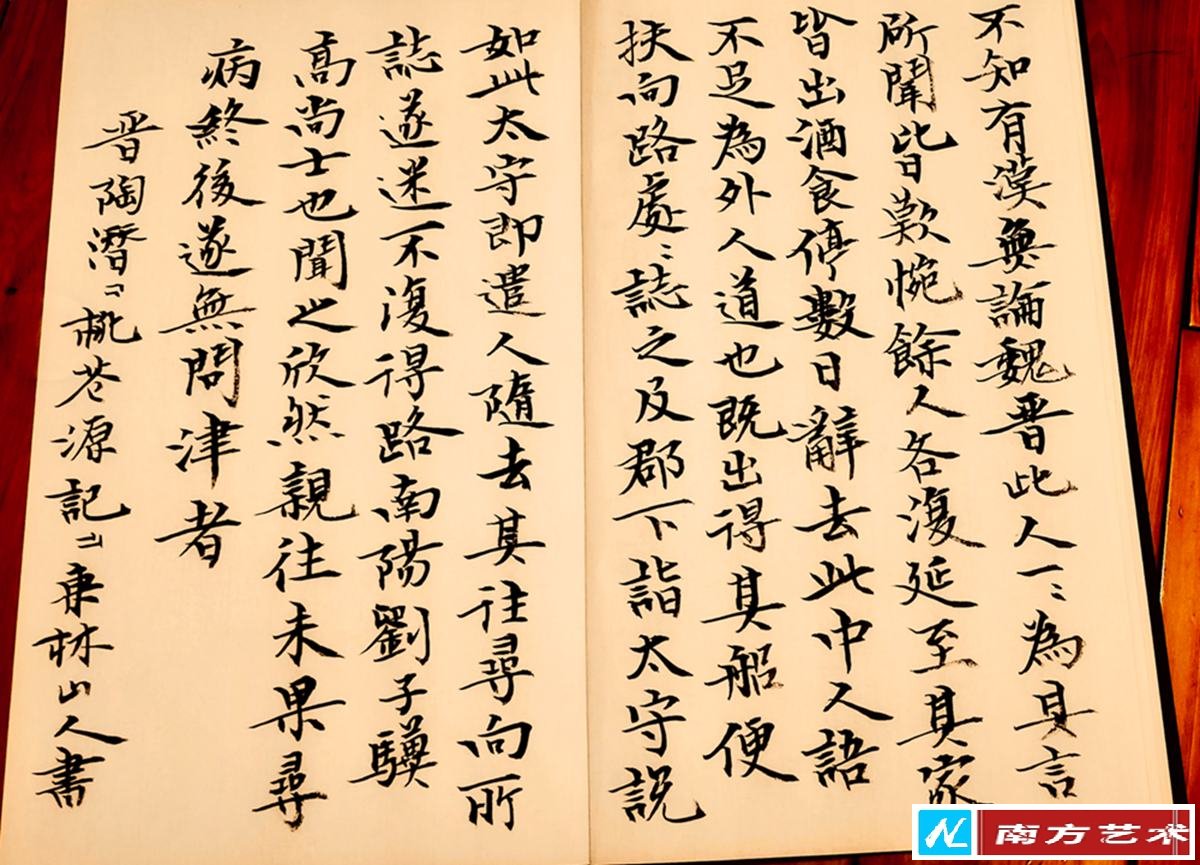 不知有漢無論魏晋此人一〻為具言
所聞皆歎惋餘人各復延至其家
皆出酒食停數日辭去此中人語
不足為外人道也既出得其船便
扶向路處〻誌之及郡下詣太守説
如此太守即遣人隨去其往尋向所
誌遂迷不復得路南陽劉子驥
高尚士也聞之欣然親往未果尋
病終後遂無問津者
晋陶潛『桃花源記』林山人書
南方艺术